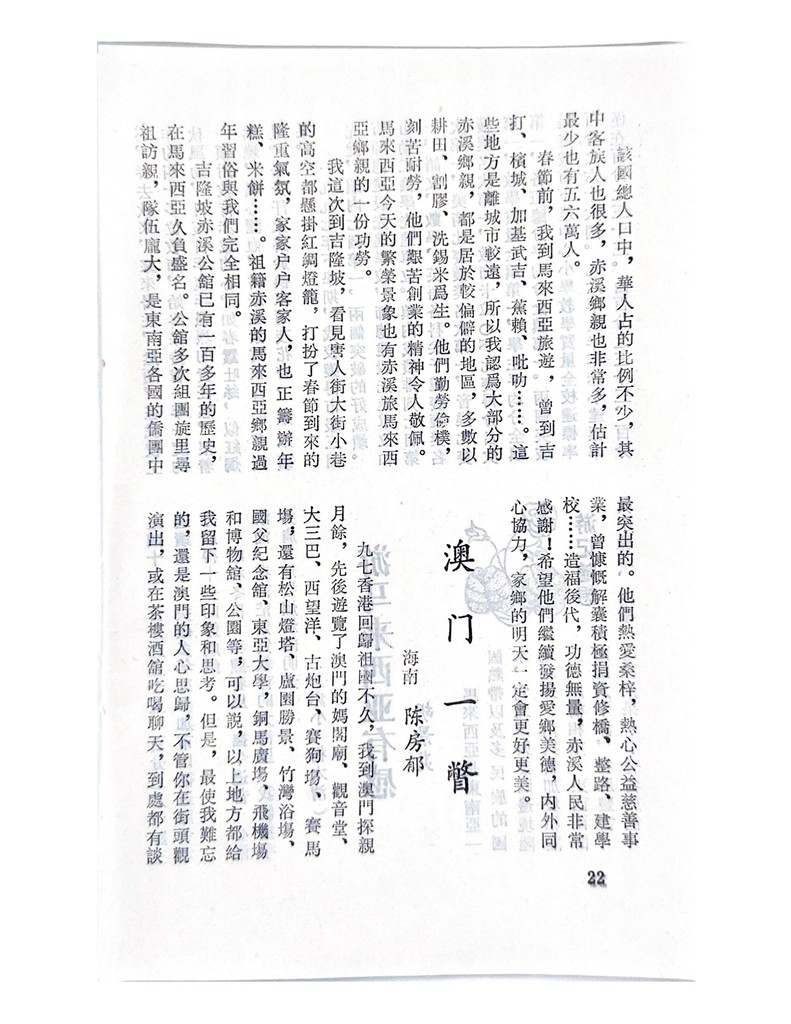 該國總人口中，華人占的比例不少，其
中客族人也很多，赤溪鄉親也非常多，估計
最少也有五六萬人。
春節前，我到馬來西亞旅遊，曾到吉
打、檳城、加基武吉、蕉賴、吡叻……。這
些地方是離城市較遠，所以我認爲大部分的
赤溪鄉親，都是居於較偏僻的地區，多數以
耕田、割膠、洗錫米爲生。他們勤勞儉樸，
刻苦耐勞，他們艱苦創業的精神令人敬佩。
馬來西亞今天的繁榮景象也有赤溪旅馬來西
亞鄉親的一份功勞。
我這次到吉隆坡，看見唐人街大街小巷
的高空都懸掛紅綢燈籠，打扮了春節到來的
隆重氣氛，家家户户客家人，也正籌辦年
糕、米餅……。祖籍赤溪的馬來西亞鄉親過
年習俗與我們完全相同。
吉隆坡赤溪公舘已有一百多年的歷史，
在馬來西亞久負盛名。公舘多次組團旋里尋
祖訪親，隊伍龐大，是東南亞各國的僑團中
最突出的。他們熱愛桑梓，熱心公益慈善事
業，曾慷慨解囊積極捐資修橋、整路、建學
校……造福後代，功德無量，赤溪人民非常
感謝！希望他們繼續發揚愛鄉美德，内外同
心協力，家鄉的明天一定會更好更美。
澳门一瞥
海南 陈房郁
九七香港回歸祖國不久，我到澳門探親
月餘，先後遊覽了澳門的媽閣廟、觀音堂、
大三巴、西望洋、古炮台、賽狗塲、賽馬
塲，還有松山燈塔、盧園勝景、竹灣浴塲、
國父紀念館、東亞大學，銅馬廣塲、飛機塲
和博物舘、公園等，可以說，以上地方都給
我留下一些印象和思考。但是，最使我難忘
的，還是澳門的人心思歸，不管你在街頭觀
演出，或在茶樓酒舘吃喝聊天，到處都有談
22